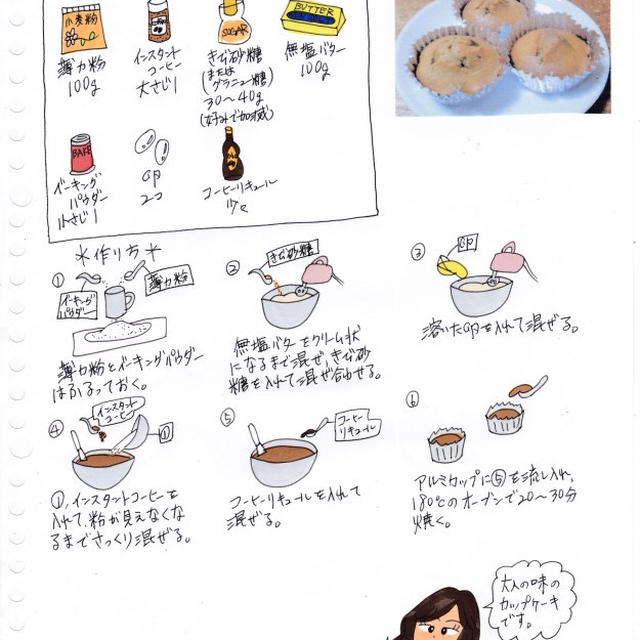 小麦粉
薄力粉
100g
インスタント
コーヒー
大さじ1
SUGAR
きび砂糖
(または
グラニュー糖)
30〜40g
(好みで加減)
BUTTER
無塩バター
100g
BAKE
ベーキング
パウダー
小さじ1
卵
2コ
コーヒーリキュール
少々
*作り方*
①
ベーキング
パウダー
薄力粉
薄力粉とベーキングパウダー
はふるっておく。
②
きび砂糖
無塩バターをクリーム状
になるまで混ぜ、きび砂
糖を入れて混ぜ合わせる。
③
卵
溶いた卵を入れて混ぜる。
④
インスタント
コーヒー
①
①、インスタントコーヒーを
入れて、粉が見えなくな
るまでさっくり混ぜる。
⑤
コーヒー
リキュール
コーヒーリキュールを入れて
混ぜる。
⑥
アルミカップに⑤を流し入れ、
180℃のオーブンで20〜30分
焼く。
大人の味の
カップケーキ
です。